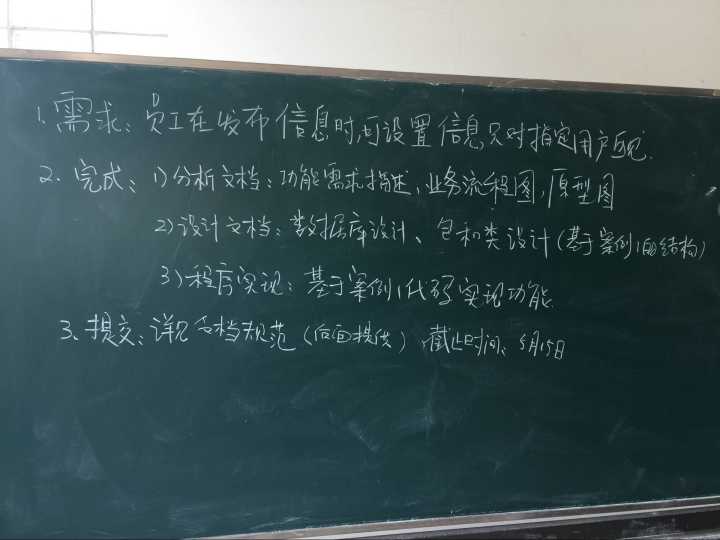 1. 需求: 员工在发布信息时,可设置信息只对指定用户可见.
2. 完成: 1) 分析文档: 功能需求描述、业务流程图,原型图
2) 设计文档: 数据库设计、包和类设计 (基于案例1的结构)
3) 程序实现: 基于案例1代码实现功能.
3. 提交: 详见文档规范 (后面提供) , 截止时间: 5月15日